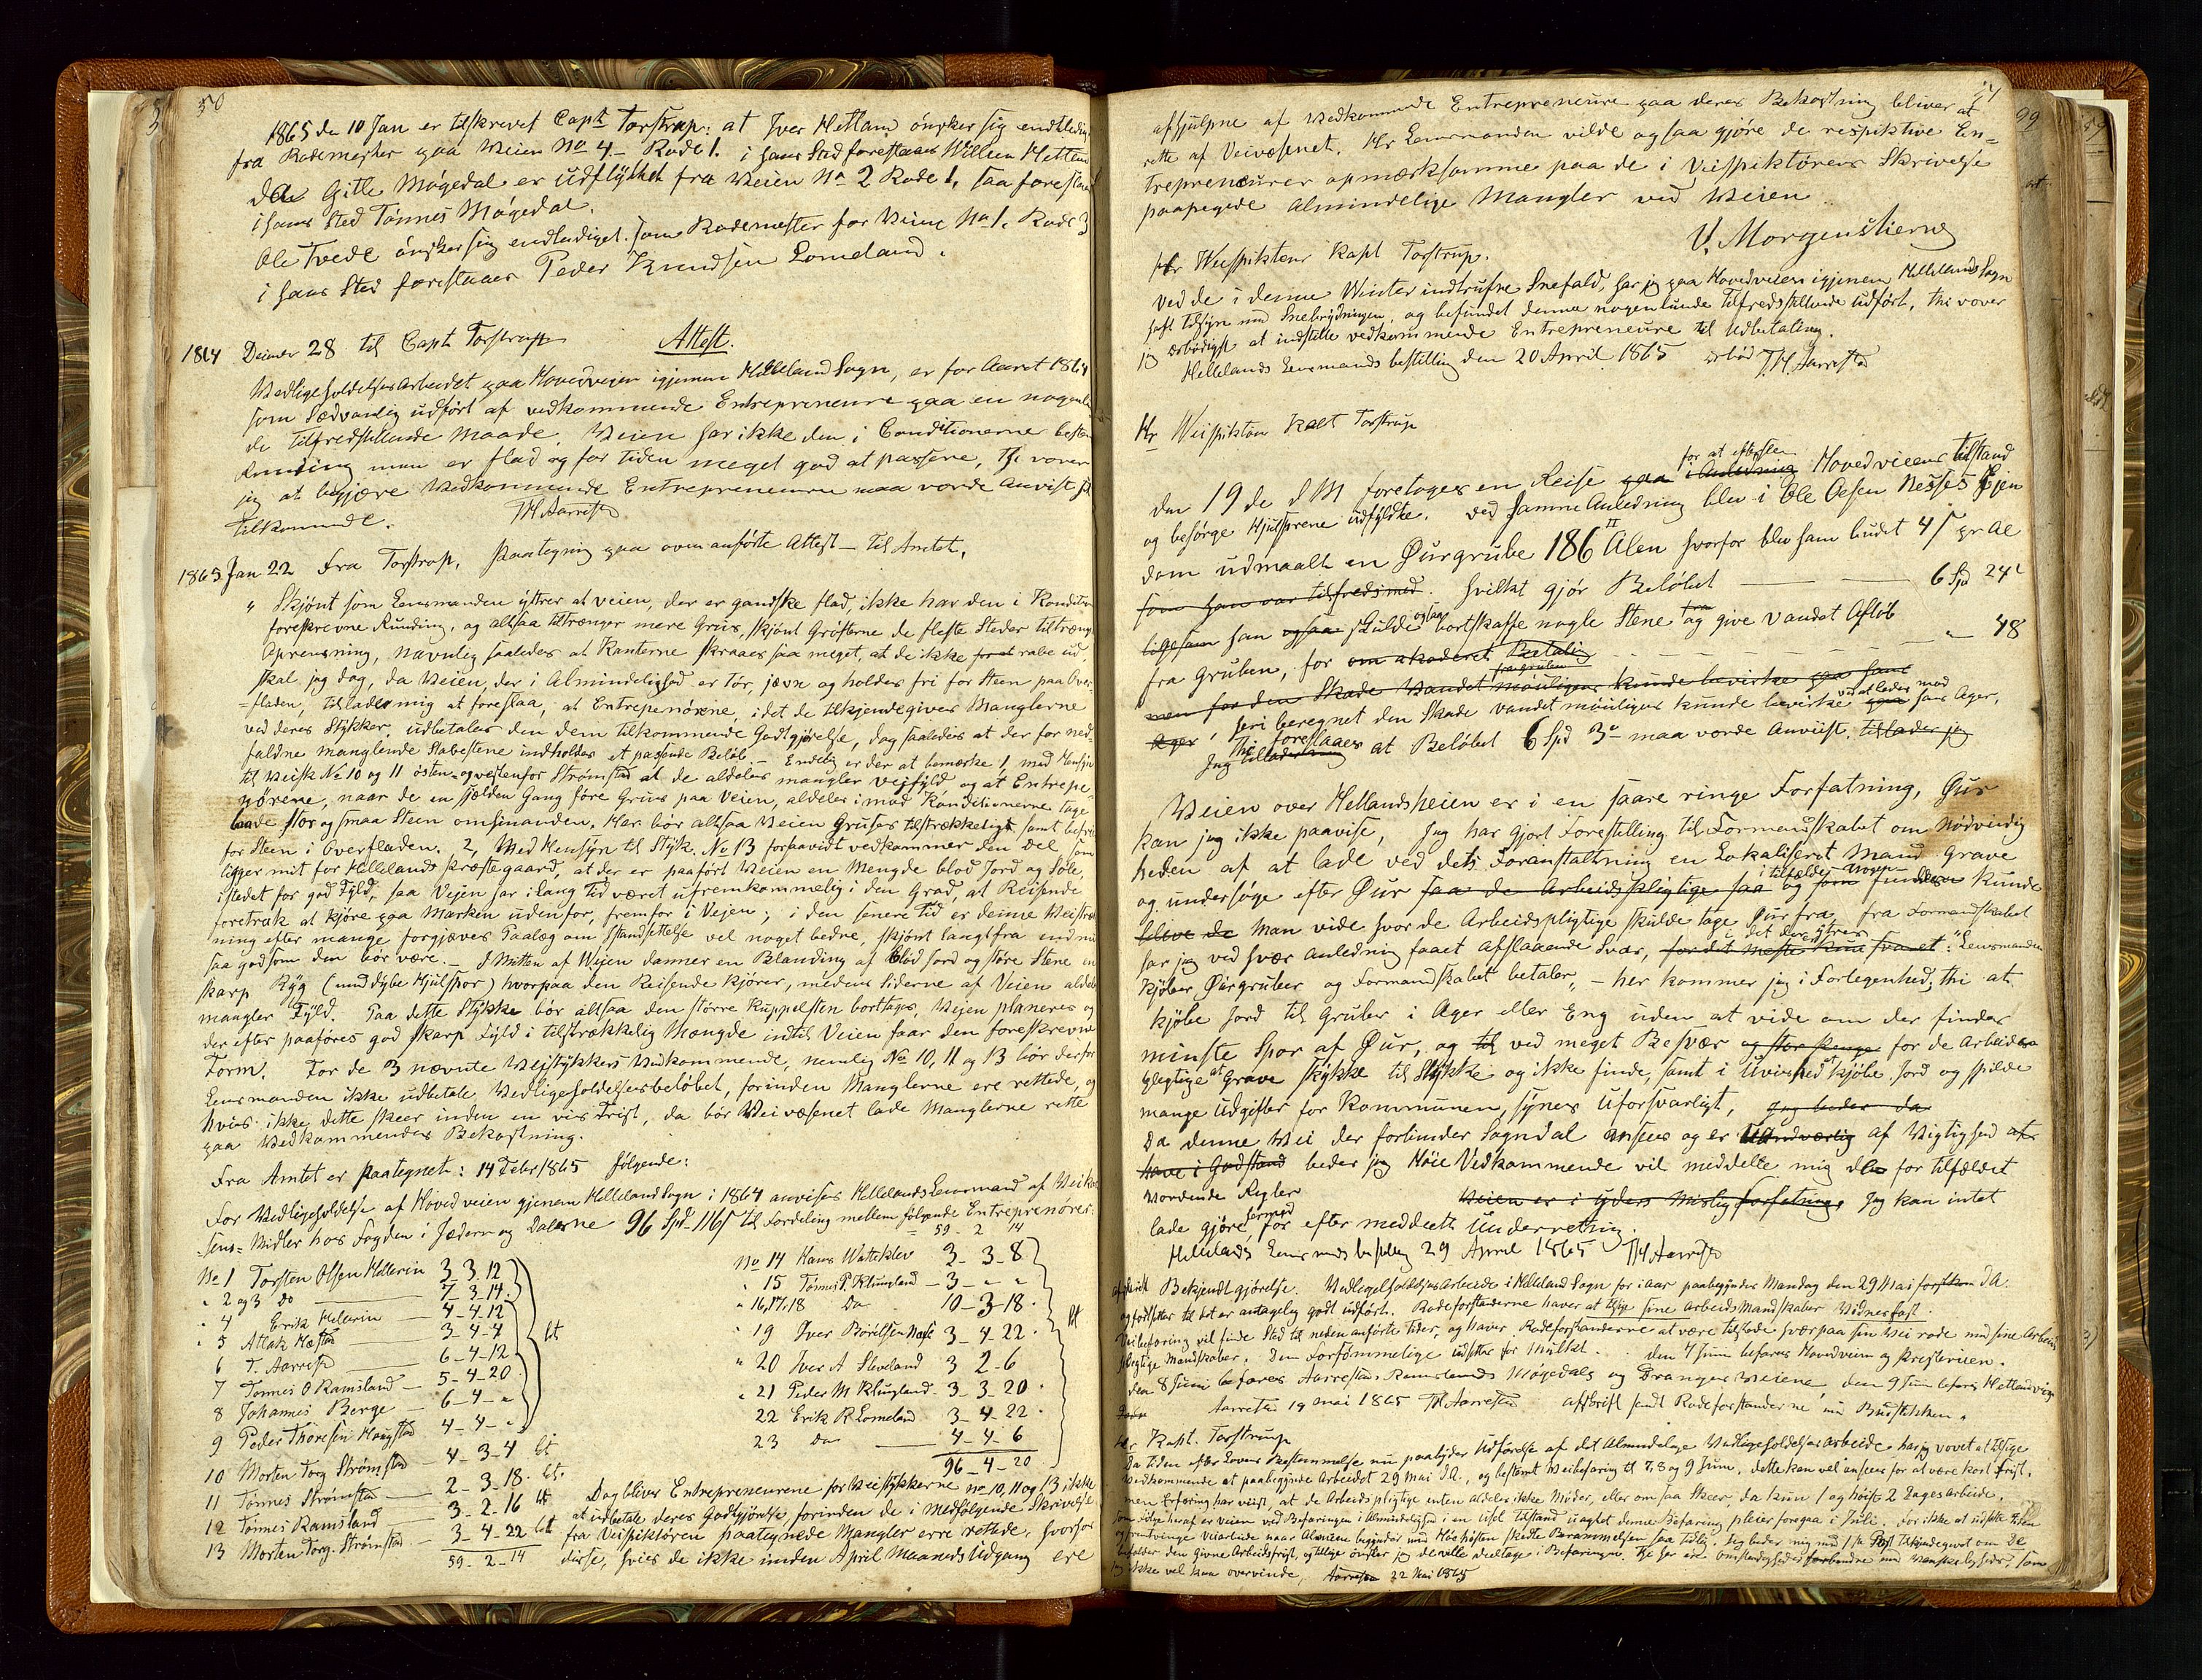 50
1865 de 10 Jan er tilskrevet Capt Torstrup: at Iver Hetland önsker sig endtledig
fra Rodemester paa Veien No 4 Rode 1. i hans Sted forestaaes Willem Hetland
da Gitle Møgedal er udflyttet fra Veien No 2 Rode 1, saa foreslaaes
i hans Sted Tönnes Møgedal.
Ole Tvede önsker sig endtlediget som Rodemester for Veien No 1. Rode 3
i hans Sted forestaaes Peder Knudsen Lomeland.
1864 28 til Capt Torstrup Attest.
Vedligeholdelsesarbeidet paa Hovedveien igjennem Helleland Sogn, er for Aaret 1864
som Sædvanlig udført af vedkommende Entrepreneure paa en nogenlun
de Tilfredstillende Maade. Veien har ikke den i Conditionerne bestemte
Runding men er flad og for Tiden meget god at passere, Thi vover
jeg at begjære Vedkommende Entrepreneurer maa vorde Anvist sit
tilkommende. TH Aarrestad
1865 Jan 22 fra Torstrup. Paategning paa ovenanförte Attest - til Amtet.
" Skjönt som Lensmanden yttrer at veien, der er gandske flad, ikke har den i Konditio
foreskrevne Runding, og altsaa tiltrænger mere Grus, skjönt Gröfterne de fleste Steder tiltrænge
Oprensning, navnlig saaledes at Kanterne skraaes saa meget, at de ikke rase ud,
skal jeg dog, da Veien, der i Almindelighed er tör, jævn og holdes fri for Steen paa Over-
=fladen, tillade mig at foreslaa, at Entrepenörene, idet de tilkjendegives Manglerne
ved deres Stykker, udbetales den dem tilkommende Godtgjörelse, dog saaledes at der for ned-
faldne manglende Stabestene indholdes et passende Belöb. - Endelig er der at bemærke 1, med Hensyn
til Veistk No 10 og 11 östen- og vestenfor Strömstad at de aldeles mangler Vejfyld, og at Entrepe-
nörene, naar de en sjelden Gang före Grus paa Veien, aldeles imod Konditionerne tage
baade stor og smaa Steen omhinanden. Her bör altsaa Veien Gruses tilstrækkeligt samt befries
for Steen i Overfladen. 2, Med Hensyn til Styk. No 13 forsaavidt vedkommer den Del som
ligger mit for Hellelands Præstegaard, at der er paafört Veien en Mengde blöd Jord og Söle,
istedet for god Fyld, saa Vejen har i lang Tid været ufremkommelig i den Grad, at Reisende
foretrak at kjöre paa Marken udenfor, fremfor i Vejen; i den senere Tid er denne Veistræk
ning efter mange forgjæves Paalæg om Istandsettelse vel noget bedre, skjönt langtfra endnu
saa god som den bör være. - I Mitten af Vejen danner en Blanding af blöd Jord og störe Stene en
skarp Ryg (med dybe Hjulspor) hvorpaa den Reisende kjörer, medens Siderne af Veien aldeles
mangler Fyld. Paa dette Stykke bör altsaa den större Kuppelsten borttages, Vejen planeres og
der efter paaföres god skarp Fyld i tilstrækkelig Mængde indtil Veien faar den foreskrevne
Form. For de 3 nævnte Vejstykkers Vedkommende, nemlig No 10, 11 og 13 bör derfor
Lensmanden ikke udbetale Vedligeholdelsesbelöbet, forinden Manglerne ere rettede, og
hvis ikke dette skeer inden en vis Frist, da bör Veivæsenet lade Manglerne rette
paa Vedkommendes Bekostning.
Fra Amtet er Paategnet: 14 Febr 1865 fölgende:
For Vedligeholdelse af Hovedveien gjenem Helleland Sogn i 1864 anvises Hellelands Lensmand af Veivæ
=sens= Midler hos Fogden i Jæderen og Dalerne 96 Spd 116 ß til Fordeling mellem fölgende Entreprenörer.
No 1 Torsten Olsen Hellerin 3 3 12
" 2 og 3 do 7 - 3 - 14
" 4 Erik Hellerin 4 - 4 - 12
" 5 Atlak Hæstad 3 - 4 - 4
6 T. Aarrestad 6 - 4 - 12
7 Tönnes O Ramsland 5 - 4 - 20
8 Johannes Berge 6 - 4 - "
9 Peder Thoresen Haugstad 4 - 4 - "
10 Morten Torg Strömstad 4 - 3 - 4 bt
11 Tönnes Strömstad 2 - 3 - 18 bt.
12 Tönnes Ramsland 3 - 2 - 16 bt
13 Morten Torg. Strömstad 3 - 4 - 22 bt
59 - 2 - 14
bt
59 - 2 14
No 14 Hans Watteklev 3 - 3 - 8
" 15 Tönnes P. Klungland 3 - " "
" 16, 17, 18 Do 10 - 3 - 18
" 19 Iver Börilsen 3 - 4 - 22
" 20 Iver A Sleveland 3 2 - 6
" 21 Peder M Klungland 3 - 3 - 20
22 Erik R Lomeland 3 - 4 - 22
23 do 4 - 4 - 6
96 - 4 - 20
bt
Dog bliver Entrepreneurene for Veistykkerne No 10, 11 og 13 ikke
at udbetale deres Godtgjörelse, forinden de i medfölgende Skrivelse
fra Veispiktören paategnede Mangler erre rettede, hvorfor
disse, hvis de ikke inden April Maaneds Udgang ere
51
afhjulpne af Vedkommende Entrepreneure paa deres Bekostning bliver at
rette af Veivæsenet. Hr Lensmanden vilde ogsaa gjöre de respiktive En-
trepreneurer opmærksomme paa de i Veispiktörens Skrivelse
paapegede Almindelige Mangler ved Veien.
V. Morgenstierne
Hr Veispiktör Kapt Torstrup.
Ved de i denne Winter indtrufne Snefald, har jeg paa Hovedveien igjenem Hellelands Sogn
haft tilsyn med Snebrydningen, og befundet denne nogenlunde Tilfredstillende Udfört, thi vover
jeg ærbödigst at indstille vedkommende Entrepreneure til Udbetaling.
Hellelands Lensmands bestilling den 20 April 1865 ærböd T.H. Aarrestad
Hr Veispiktör Kapt Torstrup
for at efterseen
den 19 de d M foretoges en Reise paa i Anledning Hovedveiens Tilstand
og besörge Hjulsporene udfyldte. ved samme Anledning blev i Ole Oesen Nesses Ejen
dom udmaalt en Øurgrube 186 Alen hvorfor blev ham budet 4 ß pr Al
som han var tilfreds med. hvilket gjör Belöbet 6 Spd 24
ligesom han ogsaa skulde ogsaa bortskaffe nogle Stene fra og give Vandet Aflöb
fra Gruben, for om akoderet Betaling " 48
men for den Skade Vandet fra gruben möuligens kunde bevirke paa hans
Ager, heri beregnet den Skade vandet möuligens kunde bevirke ved at ledes mod hans Ager,
Thi foreslaaes at Belöbet 6 Spd 3 maa vorde Anviist. tillader jeg
Jeg tillader mig
Veien over Hetlandsheien er i en saare ringe Forfatning, Øur
kan jeg ikke paavise, Jeg har gjort Forestilling til Formandskabet om Nödvendig
heden af at lade ved dets Foranstaltning en Lokaliseret Mand grave
og undersöge efter Øur saa de Arbeidspligtige saa og i tilfælde kunde
blive de Man vide hvor de Arbeidspligtige skulde tage Øur fra, fra Formandskabet
har jeg ved hver Anledning faaet Afslaaende Svar, for det meste kun svaret i det der ytres: "Lensmanden
kjöber Øurgruber og Formandskabet betaler, - her kommer jeg i Forlegenhed; thi at
kjöbe Jord til Gruber i Ager eller Eng uden at vide om der findes
minste Spor af Øur, og til ved meget Besvær og stor for de Arbeids
pligtige at Grave Stykke til Stykke og ikke finde, samt i Uvished at kjöbe Jord og spilde
mange Udgifter for Kommunen, synes Uforsvarligt, Jeg beder da
Da denne Vei der forbinder Sogndal ansees og er af Vigtighed at
have i Godstand beder jeg Höie Vedkommende vil meddelle mig de for tilfældet
Vordende Regler Veien er i yders mislig forfatning, Jeg kan intet
lade gjöre dermed, för efter meddeelt Underretning.
Hellelands Lensmands bestilling 29 April 1865 TH Aarrestad
afskrift Bekjendtgjörelse. Vedligeholdelsesarbeide i Helleland Sogn for i aar paabegyndes Mandag den 29 Mai d A.
og fortsettes til det er antagelig godt udfört. Rodeforstanderne haver at tilsige sine Arbeidsmandskaber Vidnesfast.
Veibefaring vil finde Sted til nedenanförte Tider, og haver Rodeforstanderne at være tilstede hver paa sin Vei rode med sine Arbeids
pligtige Mandskaber. Den Forsömmelige udsetter for Mulkt. den 7 Juni befares Hovedveien og Presteveien.
den 8 Juni befares Aarrestads Ramslands Møgedals og Drangsveiene, den 9 Juni befares Hetlandsveien
Aarrestad 19 Mai 1865 TH Aarrestad afskrift sendt Rodeforstanderne med Budstikken.
Hr Kapt. Torstrup
Da Tiden efter Lovens Bestemmelse nu paabyder Udförelse af det Almindelige Vedligeholdelsesarbeide har jeg vovet at tilsige
Vedkommende at paabegynde Arbeidet 29 Mai d A., og bestemt Veibefaring til 7, 8 og 9 Juni, dette kan vel ansees for at være kort Frist,
men Erfaring har viist, at de Arbeidspligtige enten aldeles ikke Möder, eller om saa skeer, da kun 1 og höist 2 Dages arbeide.
som fölge heraf er veien ved Befaringen i Almindelighed i en usel tilstand uagtet denne Befaring pleier foregaa i Juli. for ikke at udsette tiden
Jeg beder mig med Post tilkjendegivet om De
bifalder den givne Arbeidsfrist, og tillige önsker jeg De vilde deeltage i Befaringen. som
jeg ikke vel kan overvinde, Aarrestad 22 Mai 1865